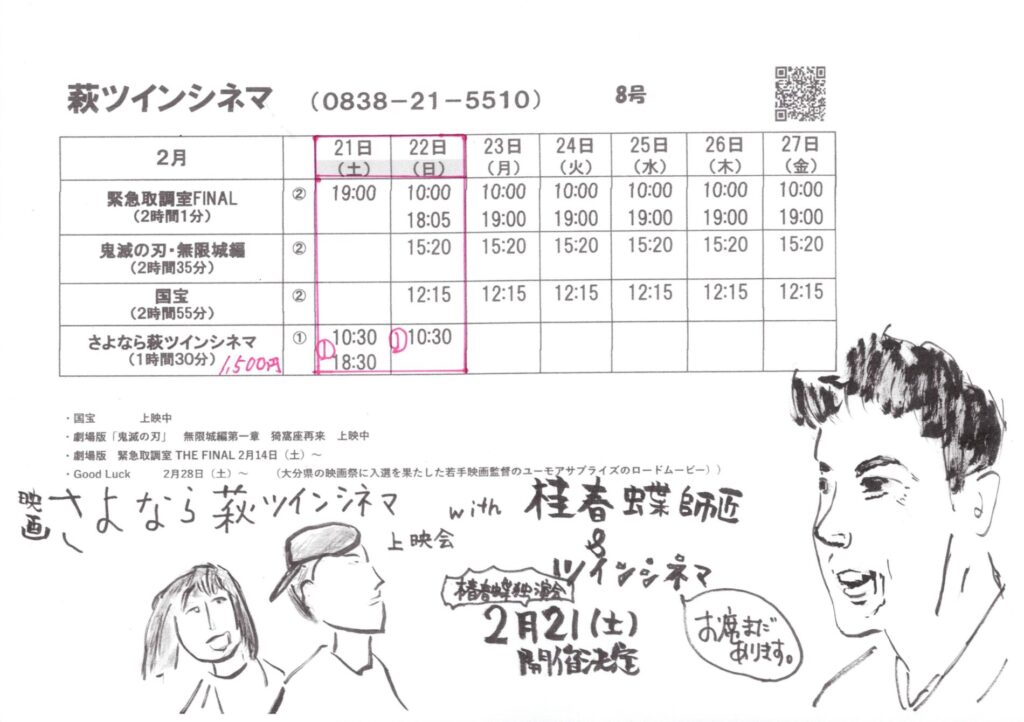 萩ツインシネマ (0838-21-5510) 8号
2月 21日(土) 22日(日) 23日(月) 24日(火) 25日(水) 26日(木) 27日(金)
緊急取調室FINAL ② 19:00 10:00 10:00 10:00 10:00 10:00 10:00
(2時間1分) 18:05 19:00 19:00 19:00 19:00 19:00
鬼滅の刃・無限城編 ② 15:20 15:20 15:20 15:20 15:20 15:20
(2時間35分)
国宝 ② 12:15 12:15 12:15 12:15 12:15 12:15
(2時間55分)
さよなら萩ツインシネマ ① 10:30 ① 10:30
(1時間30分) 1,500円 ① 18:30
・国宝 上映中
・劇場版「鬼滅の刃」 無限城編第一章 猗窩座再来 上映中
・劇場版 緊急取調室 THE FINAL 2月14日(土)~
・Good Luck 2月28日(土)~ (大分県の映画祭に入選を果たした若手映画監督のユーモアサプライズのロードムービー))
映画 さよなら萩ツインシネマ
上映会
with 桂春蝶師匠
&
ツインシネマ
桂春蝶独演会
2月21(土)
開催決定
お席まだ
あります。